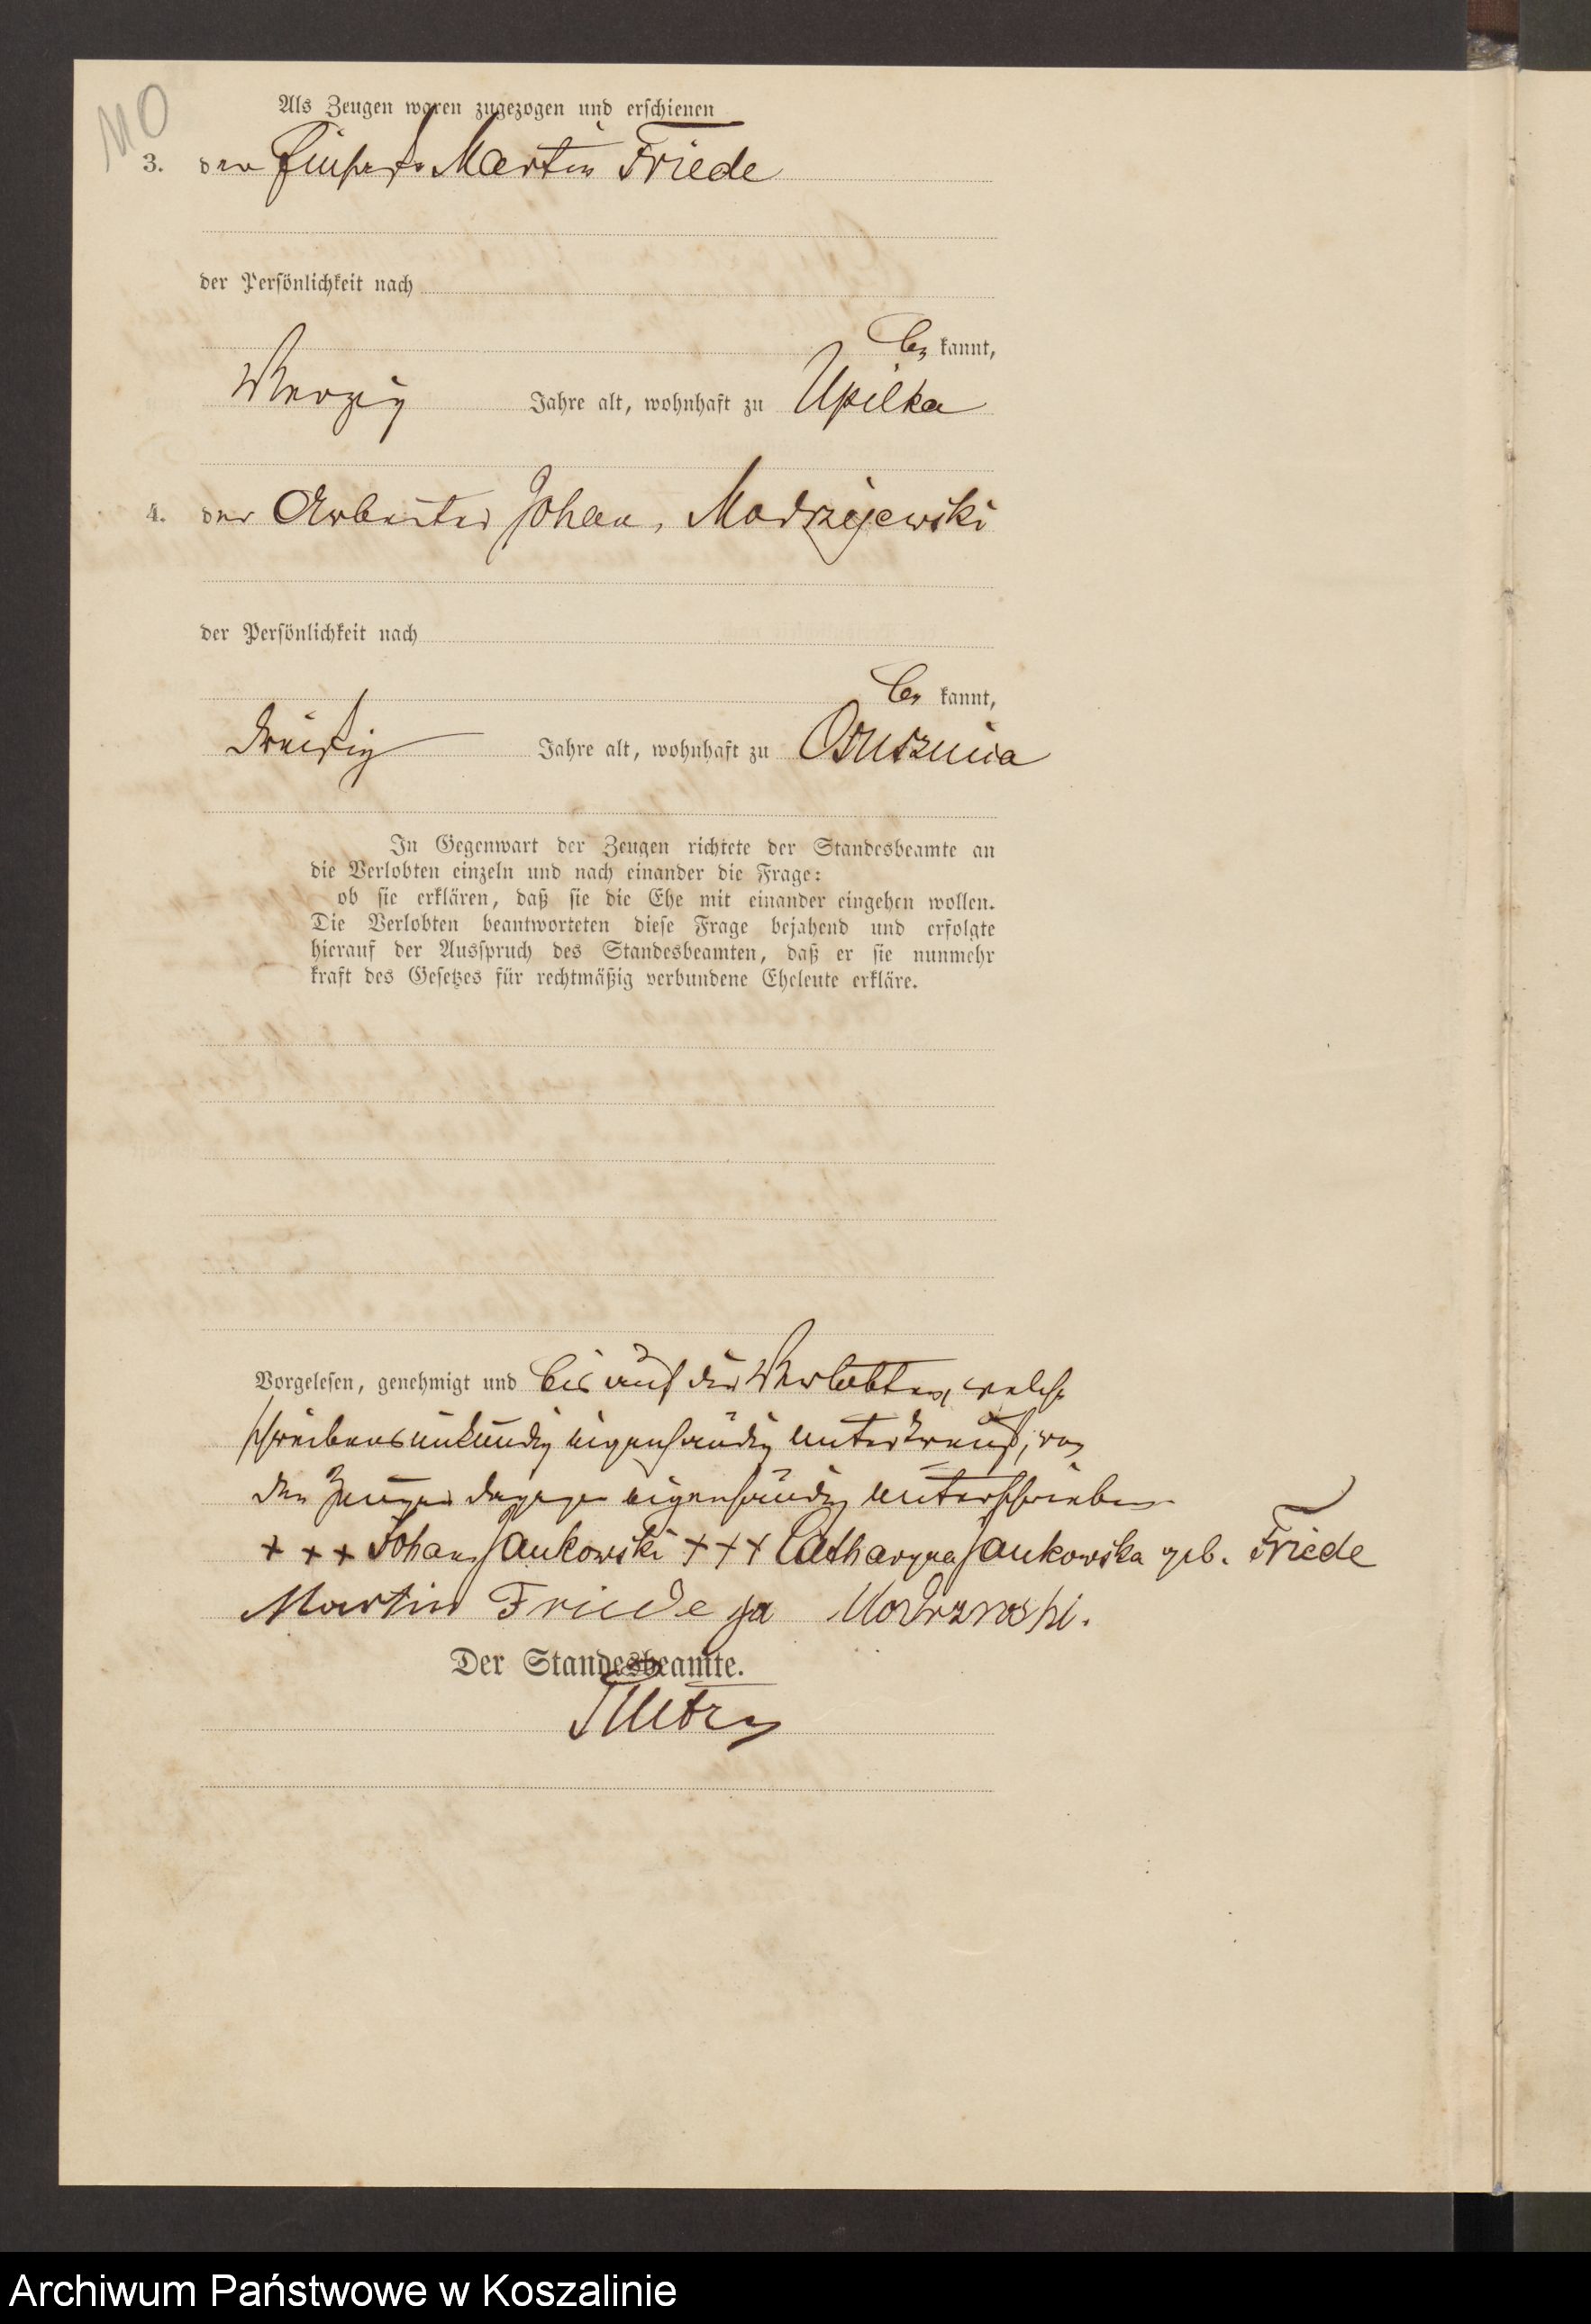 110
Als Zeugen waren zugezogen und erschienen
3. der Martin Friede
der Persönlichkeit nach
be kannt,
Vierzig Jahre alt, wohnhaft zu Upilka
4. der Arbeiter Johann Modrzejewski
der Persönlichkeit nach
be kannt,
dreißig Jahre alt, wohnhaft zu Osusznica
In Gegenwart der Zeugen richtete der Standesbeamte an
die Verlobten einzeln und nach einander die Frage:
ob sie erklären, daß sie die Ehe mit einander eingehen wollen.
Die Verlobten beantworteten diese Frage bejahend und erfolgte
hierauf der Ausspruch des Standesbeamten, daß er sie nunmehr
kraft des Gesetzes für rechtmäßig verbundene Eheleute erkläre.
Vorgelesen, genehmigt und bis auf die Verlobten, welche
schreibensunkundig eigenhändig unterkreuzt, von
den Zeugen dagegen eigenhändig unterschrieben
+ + + Johann Jankowski + + + Catharyna Jankowska geb. Friede
Martin Friede ja
Der Standesbeamte.